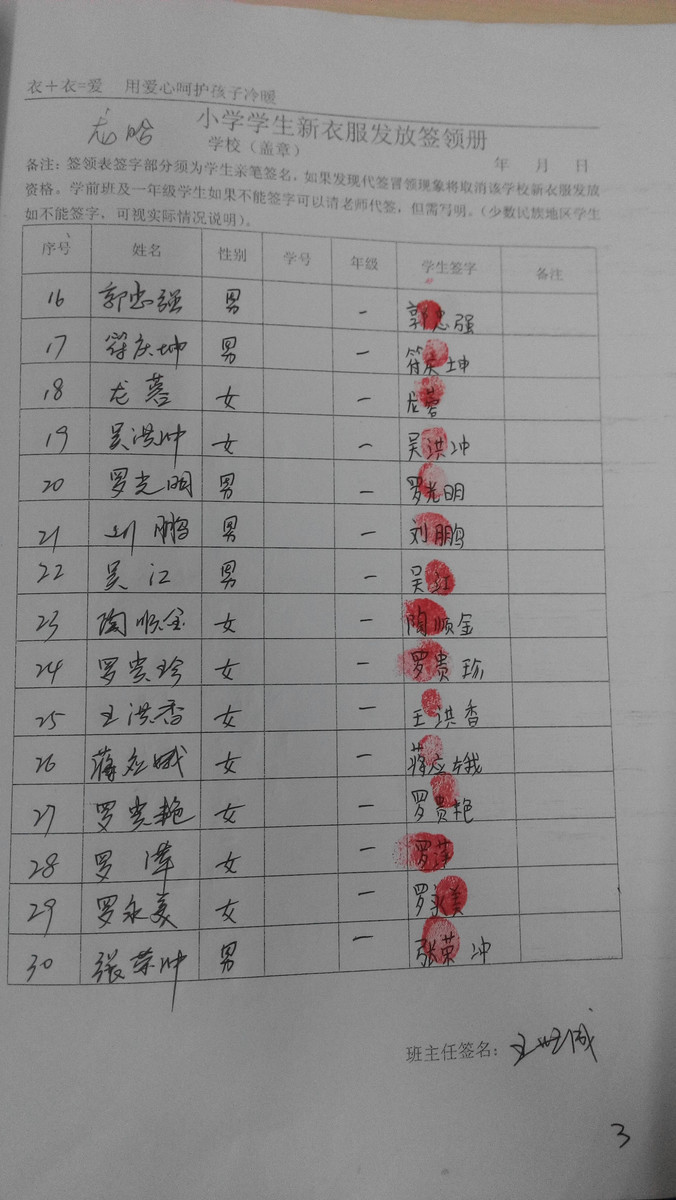 衣+衣=爱 用爱心呵护孩子冷暖
小学学生新衣服发放签领册
学校（盖章） 年 月 日
备注：签领表签字部分须为学生亲笔签名，如果发现代签冒领现象将取消该学校新衣服发放
资格。学前班及一年级学生如果不能签字可以请老师代签，但需写明。（少数民族地区学生
如不能签字，可视实际情况说明）。
序号 姓名 性别 学号 年级 学生签字 备注
16 郭忠强 男 一 郭忠强
17 符庆坤 男 一 符庆坤
18 龙蓉 女 一 龙蓉
19 吴洪冲 女 一 吴洪冲
20 罗光明 男 一 罗光明
21 刘鹏 男 一 刘鹏
22 吴江 男 一 吴江
23 陶顺金 女 一 陶顺金
24 罗贵珍 女 一 罗贵珍
25 王洪香 女 一 王洪香
26 蒋应娥 女 一 蒋应娥
27 罗贵艳 女 一 罗贵艳
28 罗 女 一 罗
29 罗永美 女 一 罗永美
30 张荣冲 男 一 张荣冲
班主任签名：王
3